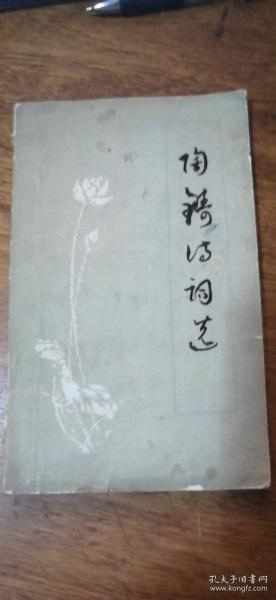 陶铸诗词选
孔夫子旧书网
kongfz.com